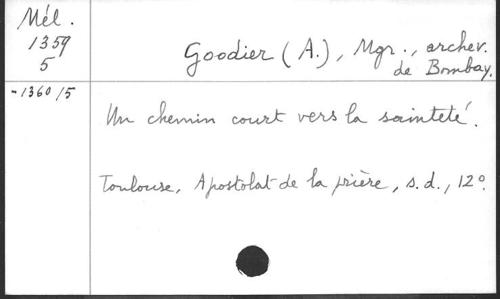 Mél.
1359
5
-1360/5
Goodier (A.), Mgr., archev.
de Bombay.
Un chemin court vers la sainteté.
Toulouse, Apostolat de la prière, s.d., 12º.